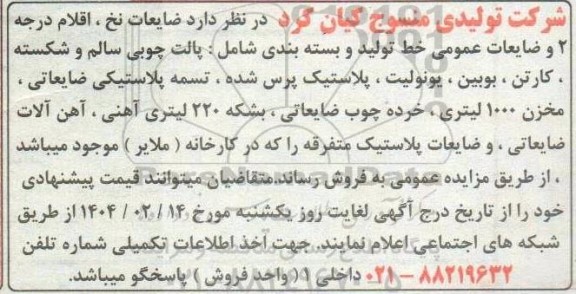 شرکت تولیدی منسوج کیان کرد در نظر دارد ضایعات نخ ، اقلام درجه
۲ و ضایعات عمومی خط تولید و بسته بندی شامل : پالت چوبی سالم و شکسته
، کارتن ، بوبین ، یونولیت ، پلاستیک پرس شده ، تسمه پلاستیکی ضایعاتی ،
مخزن ۱۰۰۰ لیتری ، خرده چوب ضایعاتی ، بشکه ۲۲۰ لیتری آهنی ، آهن آلات
ضایعاتی ، و ضایعات پلاستیک متفرقه را که در کارخانه ( ملایر ) موجود میباشد
، از طریق مزایده عمومی به فروش رساند.متقاضیان میتوانند قیمت پیشنهادی
خود را از تاریخ درج آگهی لغایت روز یکشنبه مورخ ۱۴۰۴/۰۲/۱۴ از طریق
شبکه های اجتماعی اعلام نمایند. جهت اخذ اطلاعات تکمیلی شماره تلفن
۰۲۱-۸۸۲۱۹۶۳۲ داخلی ۱( واحد فروش ) پاسخگو میباشد.